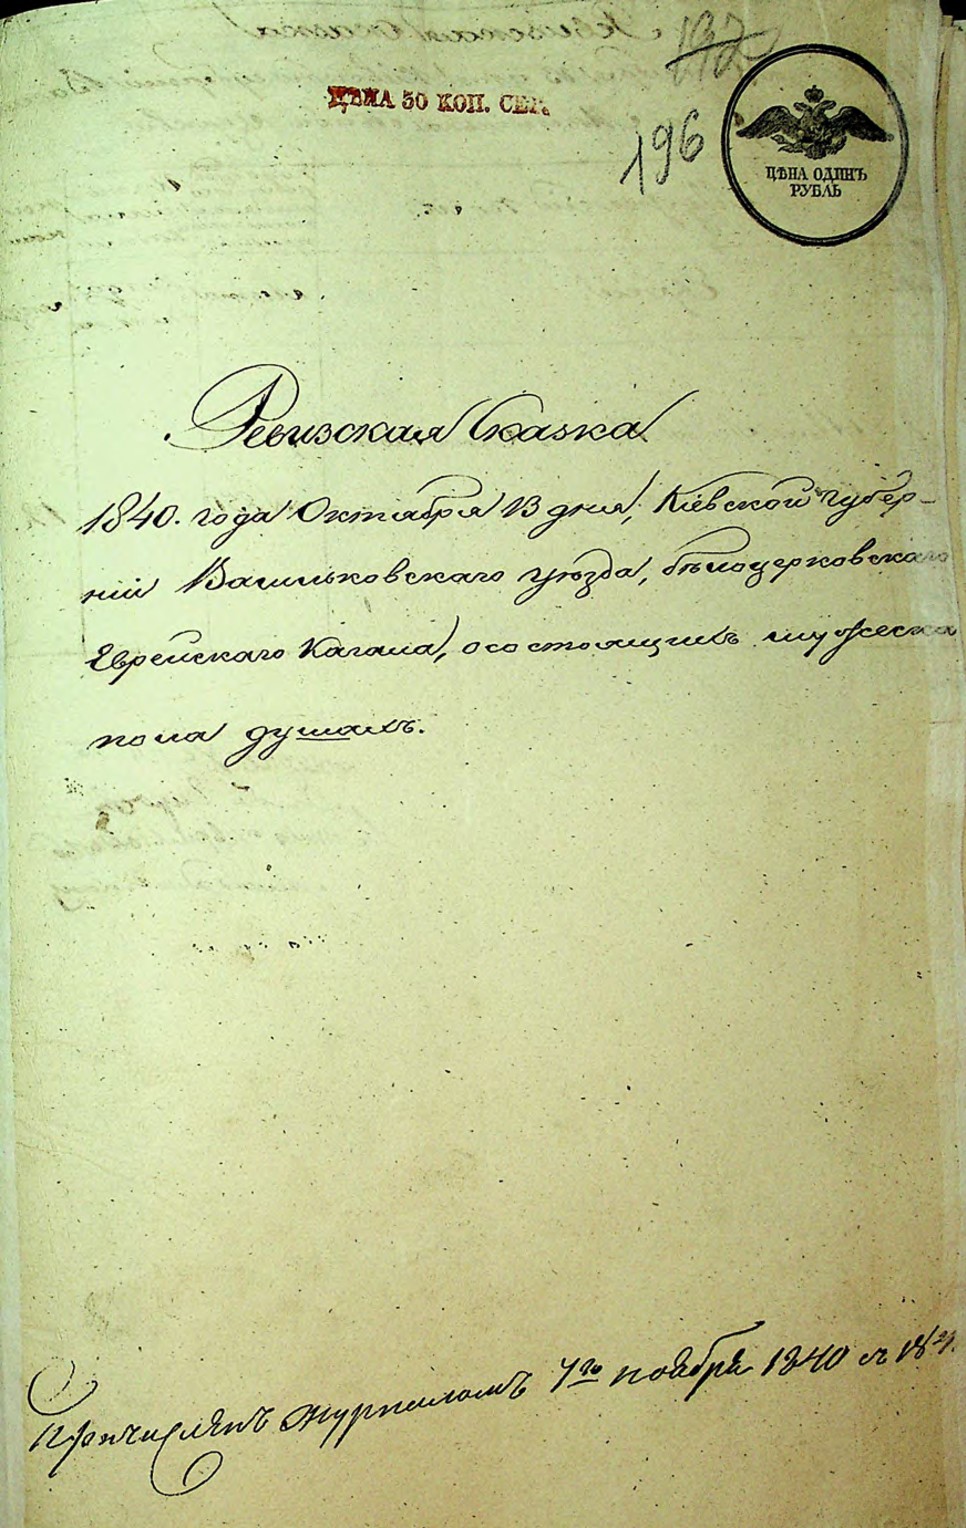 192
ЦѢНА 50 КОП. СЕР.
196
ЦѢНА ОДИНЪ
РУБЛЬ
Ревизская Сказка
1840. года Октября 13 дня, Кіевской Губер-
ніи Васильковскаго уѣзда, бѣлоцерковскаго
Еврейскаго Кагала, о состоящихъ мужеска
пола душахъ.
Причисленъ журналомъ 7го ноября 1840 съ 184